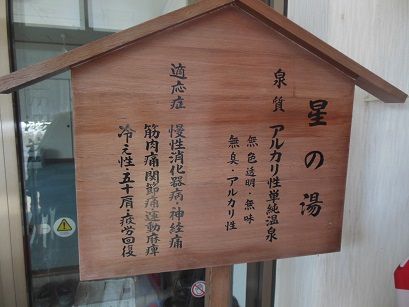 星の湯
泉質 アルカリ性単純温泉
無色透明・無味
無臭・アルカリ性
適応症 慢性消化器病・神経痛
筋肉痛関節痛運動麻痺
冷え性・五十肩・疲労回復